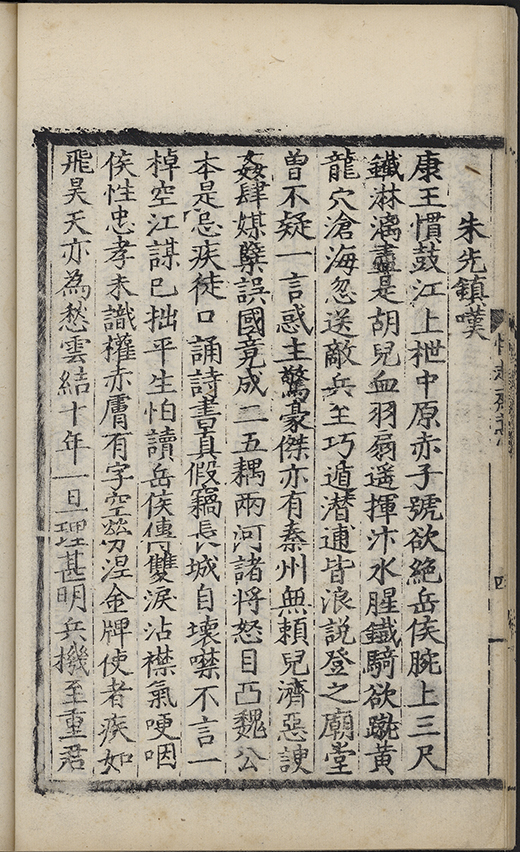 朱先鎮嘆
康王慣鼓江上枻中原赤子號欲絶岳侯腕上三尺
鐵淋漓盡是胡兒血羽扇遥揮汴水腥鐵騎欲蹴黄
龍穴滄海忽送敵兵至巧遁潛逋皆浪説登之廟堂
曽不疑一言惑主驚豪傑亦有秦州無頼兒濟惡諛
姦肆媒櫱誤國竟成二五耦兩河諸将怒目凸魏公
本是忌疾徒口誦詩書真假竊長城自壞噤不言一
棹空江謀已拙平生怕讀岳侯傳雙淚沾襟氣哽咽
侯性忠孝未識權赤膚有字空勞涅金牌使者疾如
飛昊天亦為愁雲結十年一旦理甚明兵機至重君
四